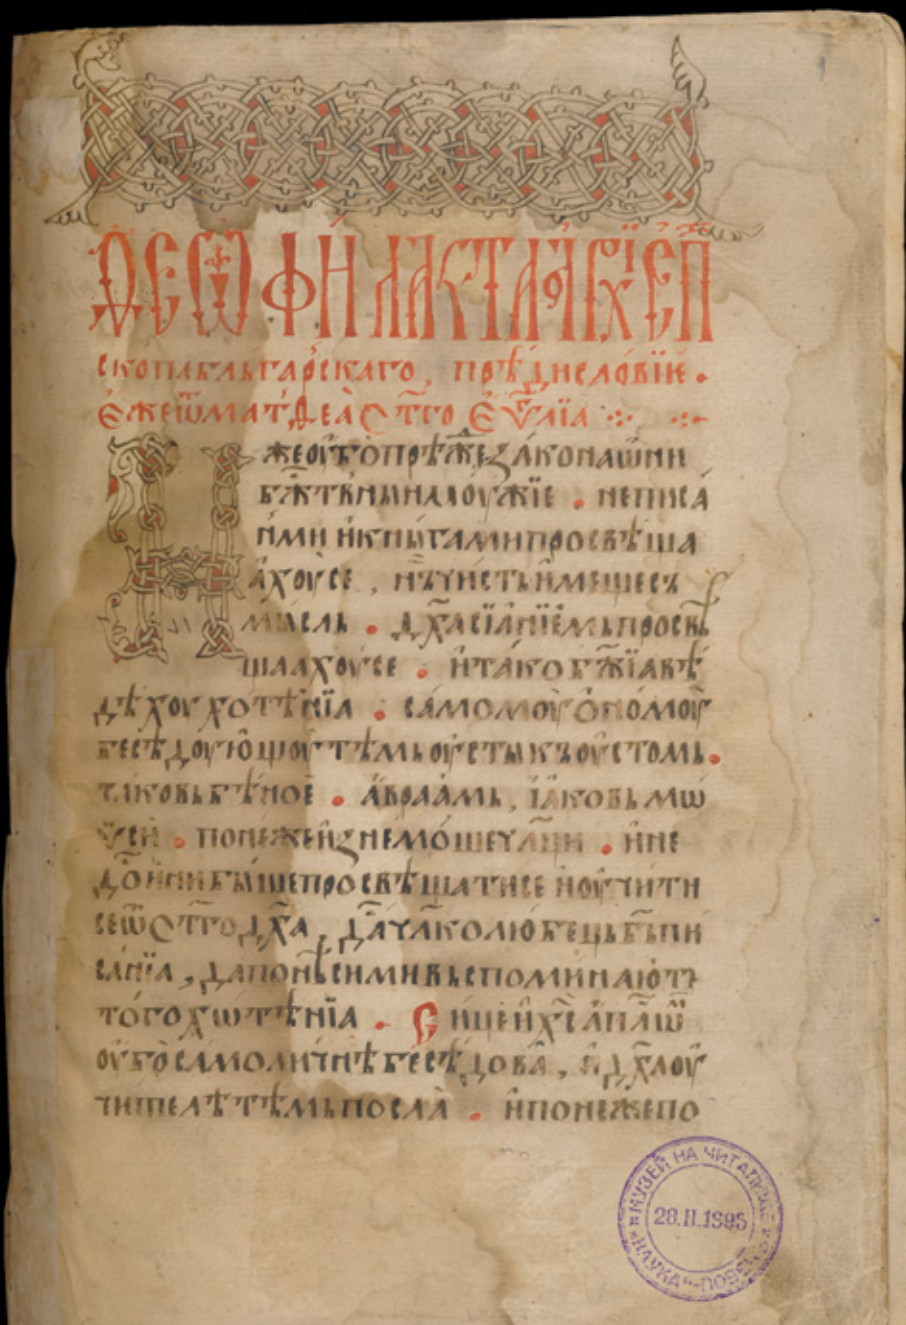 Ѳеѡфи́лакта а҆рхїеп҃
скопа бльга́рскаго, прѣ́дисло́вїе.
є҆же ѿ матѳеа̀ с҃тго є҆ѵ҃лїа
И҆же ѹ҆́бо прѣ́ж҃е зако́на ѡ҆ни
бж҃твнын моу́жїе . не писа́
нми и҆ кни́гами просвѣща
а́хоу се , нь чист и҆мѣще съ
мысль . дх҃а сїа́нїемь просвѣ
щаахоу се . и҆ та́ко бж҃їа вѣ́
дѣхоу хотѣ́нїа . са́момоу ѻ҆номоу
бесѣ́доую҆щоу тѣ́мь оусты къ оустомь.
таковь бѣ но́е . а҆враа́мь, і҆а́ковь мѡ
ѵ̈се́и . поне́же и҆знемо́ше чл҃ци . и҆ не
до҆и҆ни бы́ше просвѣща́ти се и҆ оучи́ти
се ѿ ст҃го дх҃а , да́ чл҃колю́бець бь пи
са́нїа , да поне́ си́ми вьспомина́ютъ
то́го хѡтѣ́нїа . Сице и҆ хс҃ а҆пл҃ѡⷨ
оубо самоли́чнѣ бесѣ́дова , и҆ дх҃а оу
чи́телѣ тѣ́мь посла̀ . и҆ поне́же по
МУЗЕЙ НА ЧИТАЛИЩЕ
28.II.1995
"НАУКА"